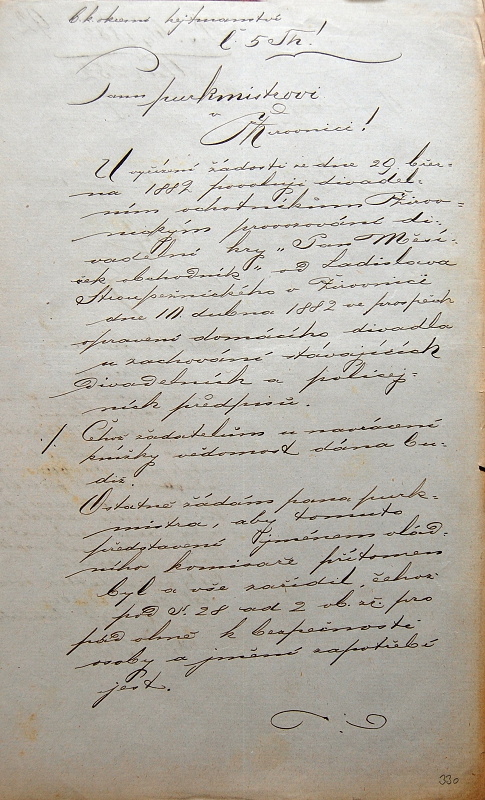 C. k. okresní hejtmanství
č. 5 Th!
Panu purkmistrovi
v
Žirovnici!
U vyřízení žádosti ze dne 29 břez-
na 1882 povoluji divadel-
ním ochotníkům Žirov-
nickým provozování di-
vadelní hry "Pan Měsí-
ček obchodník" od Ladislava
Stroupežnického v Žirovnici
dne 10 dubna 1882 ve prospěch
opravení domácího divadla
u zachování stávajících
divadelních a policej-
ních předpisů.
./. Čehož žadatelům u navrácení
knížky vědomost dána bu-
diž.
Ostatně žádám pana purk-
mistra, aby tomuto
představení jménem vlád-
ního komisaře přítomen
byl a vše zařídil, čehož
pod §. 28 ad 2 ob. zř. pro
pád ohně k bezpečnosti
osoby a jmění zapotřebí
jest.
330